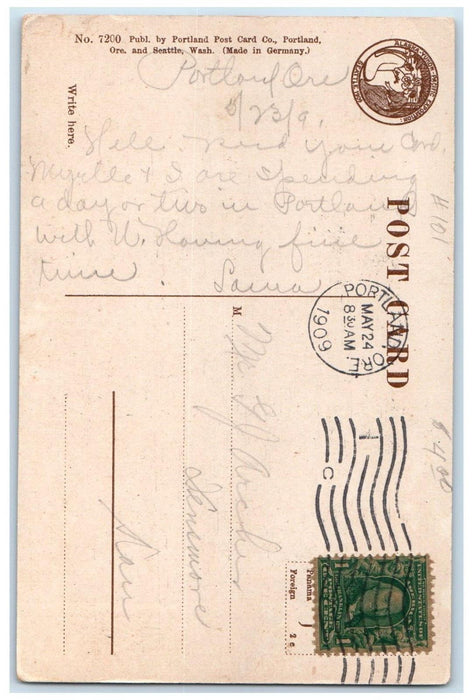 No. 7200 Publ. by Portland Post Card Co., Portland,
Ore. and Seattle, Wash. (Made in Germany.)
ALASKA-YUKON-PACIFIC EXPOSITION
Write here.
Portland Ore
5/23/9.
Hello your Card,
Myrtle & I are spending
a day or two in Portland
with W. Having fine
time.
POST CARD
# 101
PORTLAND, ORE.
MAY 24
8 30 AM
1909
M
Mr Archer
Kansas
4 00
1
C
Panama
Foreign 2 c.